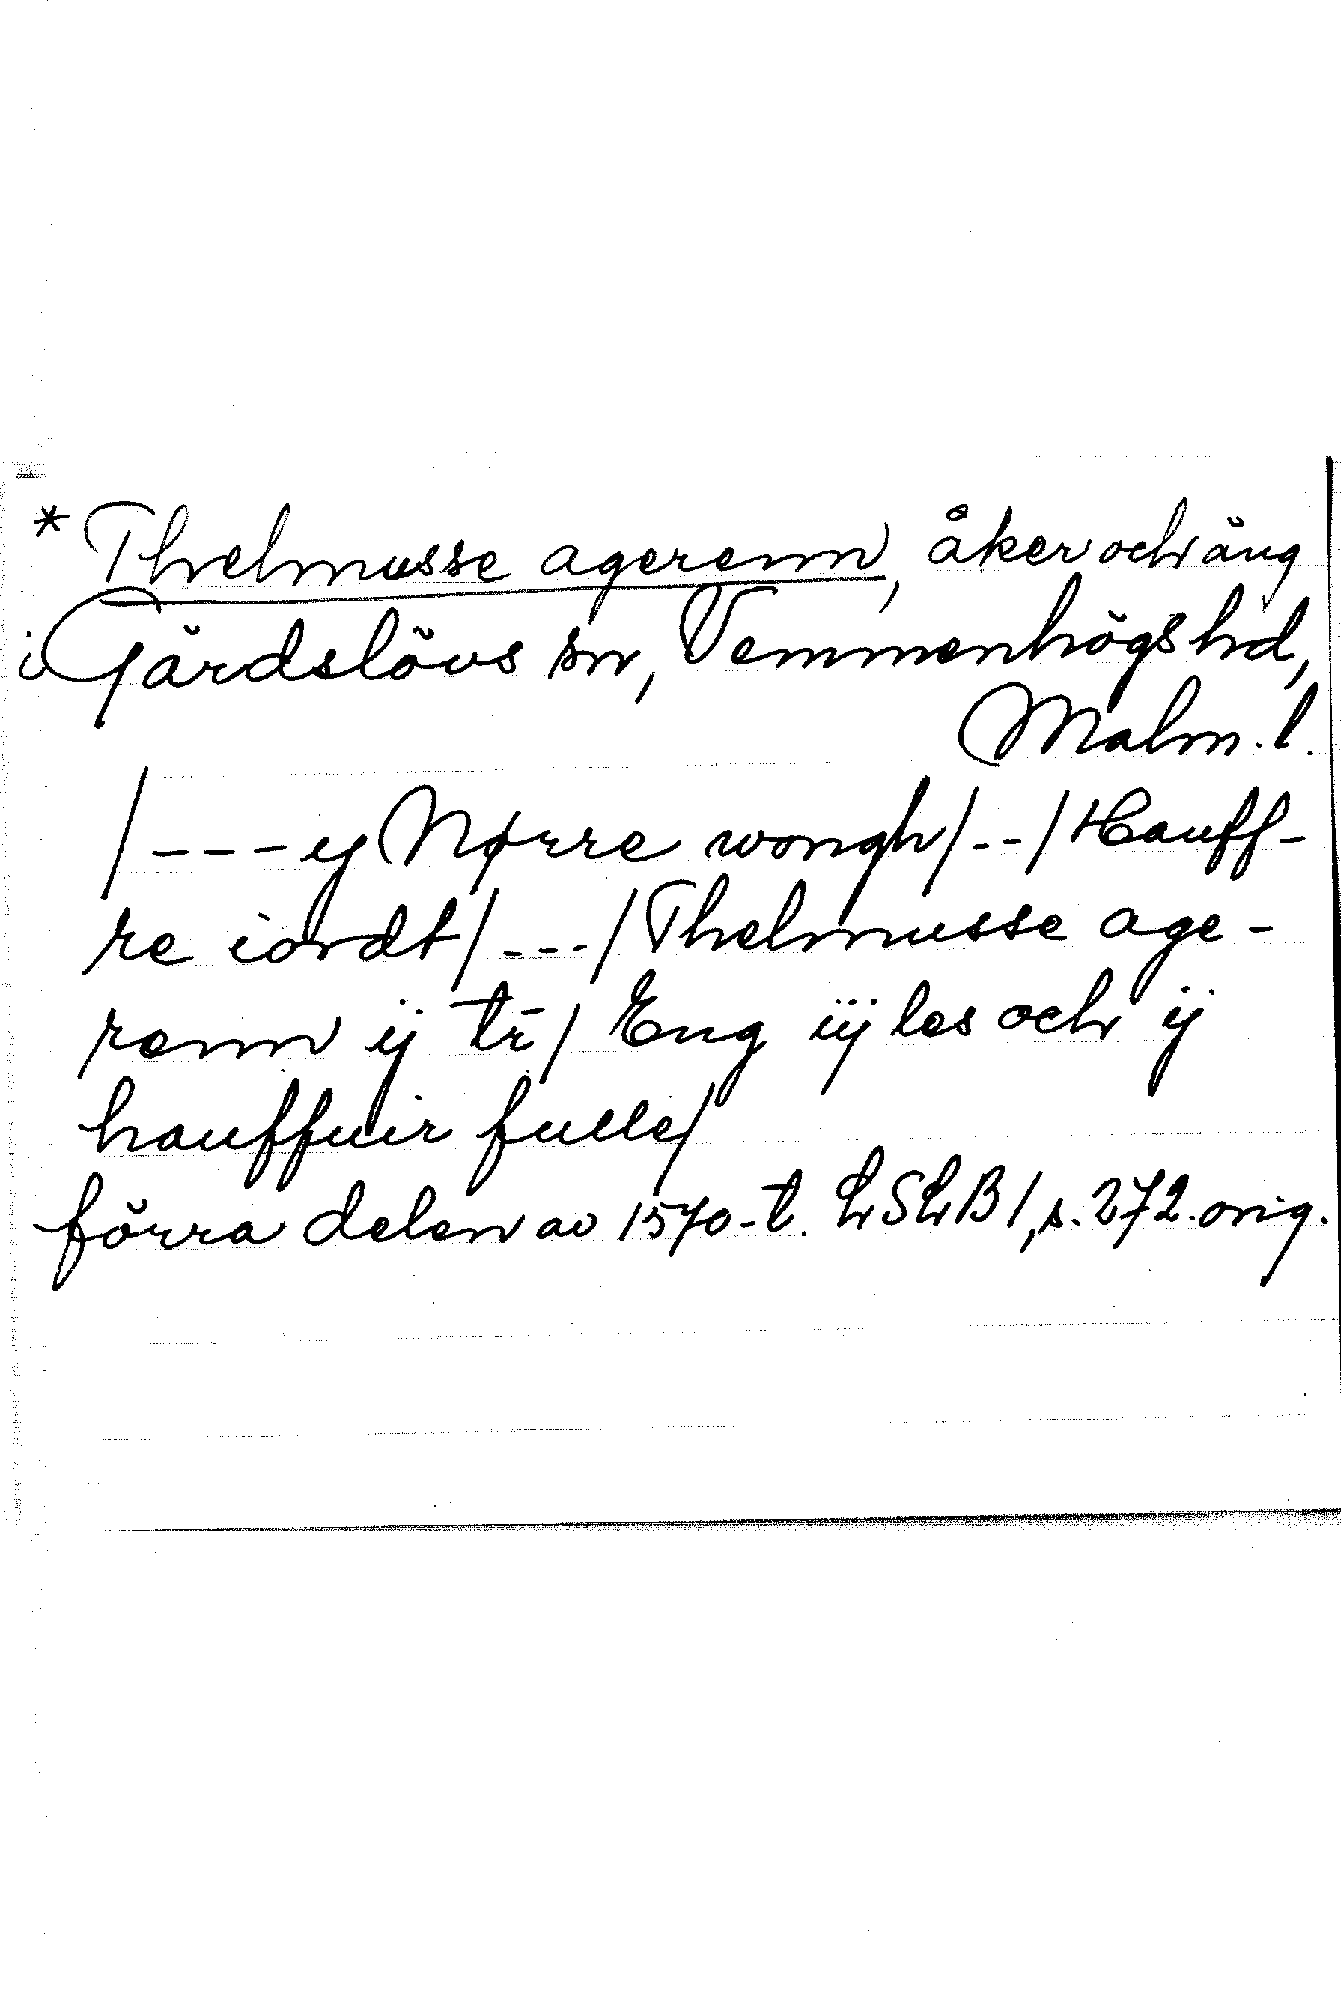 * Thelmusse agerenn, åker och äng
i Gärdslövs sn, Vemmenhögs hd,
Malm. l.
/---y Nørre wongh/--/Hauff-
re iordt/---/Thelmusse age-
renn ij tr̄/ Eng iij les och ij
hauffuir fulle/
förra delen av 1570-t. LSLB 1, s. 272. orig.